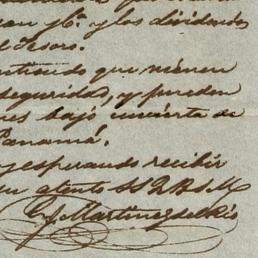 y los dividendos
Tesoro.
que vienen
seguridad, y pueden
bajo cubierta de
Panamá.
y esperando recibir
atento S. S. Q. B. S. M.
Martinez del Rio